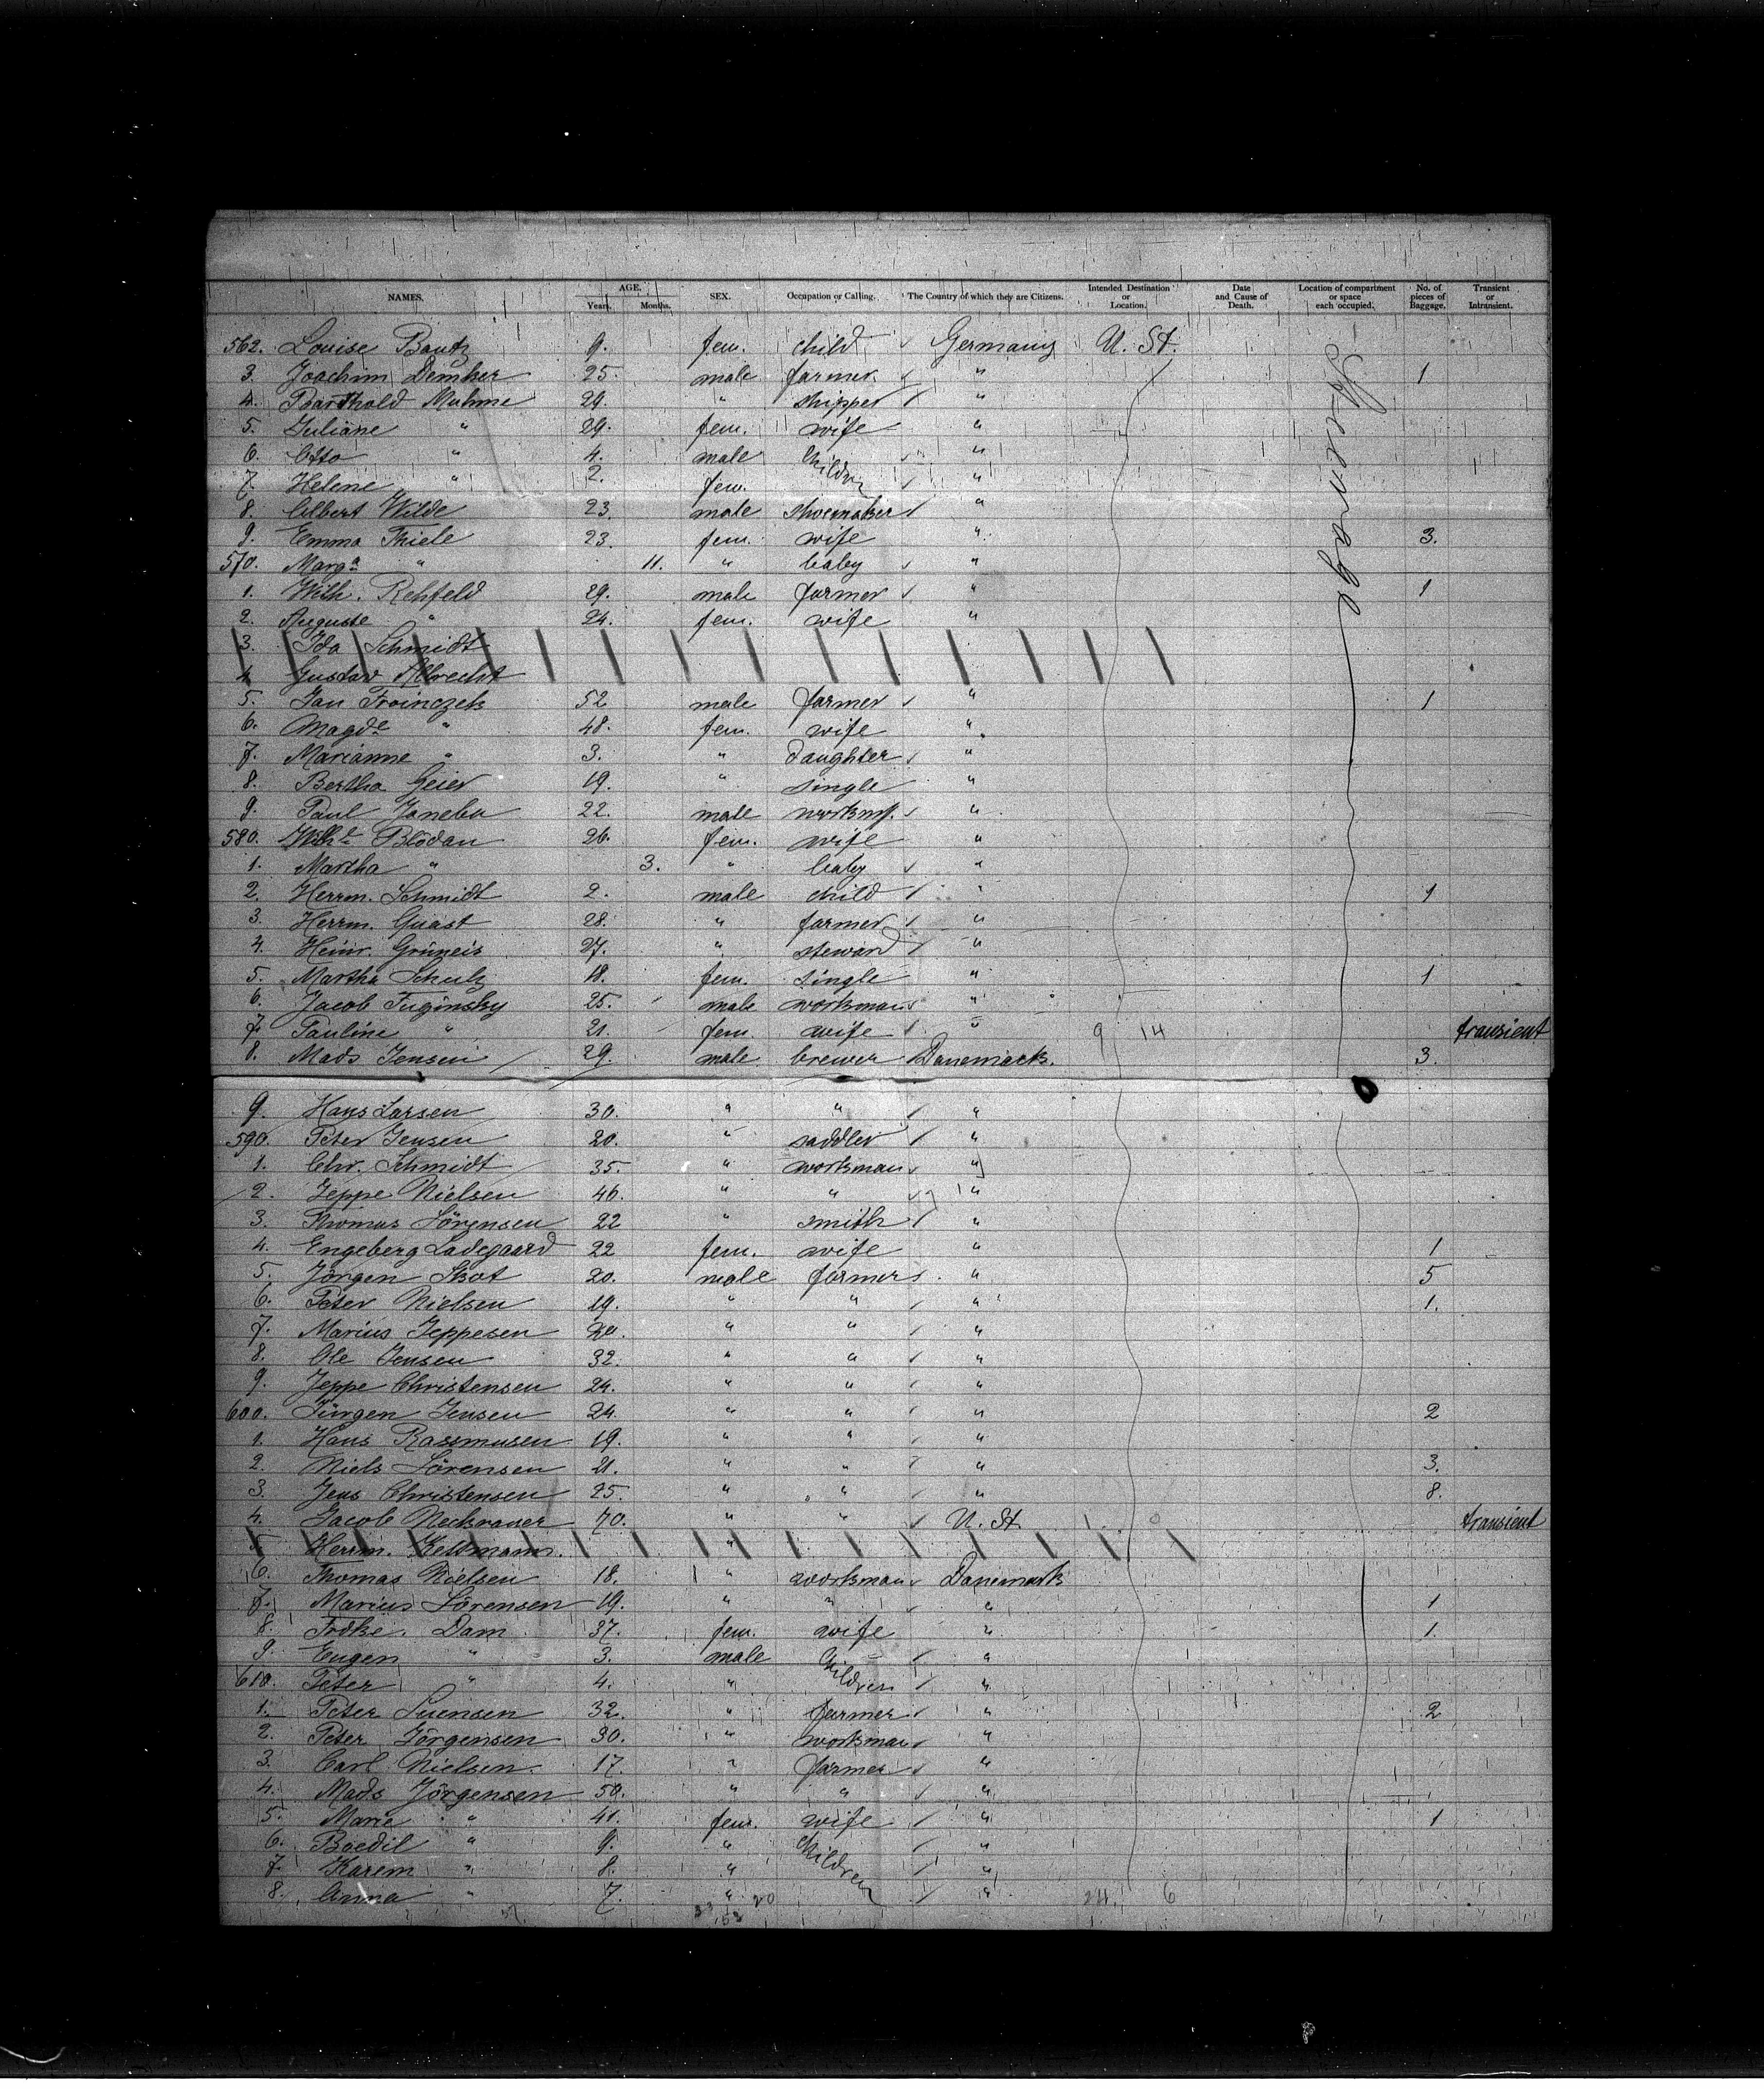 NAMES. AGE. Years. Months. SEX. Occupation or Calling. The Country of which they are Citizens. Intended Destination or Location. Date and Cause of Death. Location of compartment or space each occupied. No. of pieces of Baggage. Transient or Intransient.
562. Louise Bautz 9. fem. child Germany U. St.
3. Joachim Demker 25. male farmer. " 1
4. Barthold Muhme 29. " shipper "
5. Juliane " 29. fem. wife "
6. Otto " 4. male children "
7. Helene " 2. fem. "
8. Albert Wilde 23. male shoemaker "
9. Emma Thiele 23. fem. wife " 3.
570. Marga " 11. " baby "
1. Wilh. Rehfeld 29. male farmer " 1
2. Auguste " 24. fem. wife "
3. Ida Schmidt
4. Gustav Albrecht
5. Jan Troinczek 52 male farmer " 1
6. Magde " 48. fem. wife "
7. Marianne " 3. " daughter "
8. Bertha Geier 19. " single "
9. Paul Janeba 22. male "
580. Wilhe Blödau 26. fem. wife "
1. Martha " 3. " baby "
2. Herrm. Schmidt 2. male child " 1
3. Herrm. Quast 28. " farmer "
4. Heinr. Grüneis 27. " steward "
5. Martha Schulz 18. fem. single " 1
6. Jacob Tuginsky 25. male workman "
7. Pauline " 21. fem. wife " 9 14 transient
8. Mads Jensen 29. male brewer Danemark. 3.
9. Hans Larsen 30. " " "
590. Peter Jensen 20. " saddler "
1. Chr. Schmidt 35. " workman "
2. Jeppe Nielsen 46. " " "
3. Thomas Sörgensen 22 " smith "
4. Engeberg Ladegaard 22 fem. wife " 1
5. Jörgen Skot 20. male farmer " 5
6. Peter Nielsen 19. " " " 1.
7. Marius Jeppesen 20. " " "
8. Ole Jensen 32. " " "
9. Jeppe Christensen 24. " " "
600. Jürgen Jensen 24. " " " 2
1. Hans Rassmusen 19. " " "
2. Niels Sörensen 21. " " " 3.
3. Jens Christensen 25. " " " 8.
4. Jacob Neckrauer 70. " " U. St. transient
5. Herrm. Kettmann. "
6. Thomas Nielsen 18. " workman Danemark
7. Marius Sörensen 19. " " " 1
8. Dam 37. fem. wife " 1.
9. Eugen " 3. male children "
610. Peter " 4. " "
1. Peter Suensen 32. " farmer " 2
2. Peter Jörgensen 30. " workman "
3. Carl Nielsen. 17. " farmer "
4. Mads Jörgensen 50. " " "
5. Marie " 41. fem. wife " 1
6. Boedil " 9. " children "
7. Karem " 8. " "
8. Anna " 7. " " 24. 6
33 20
53
Steerage